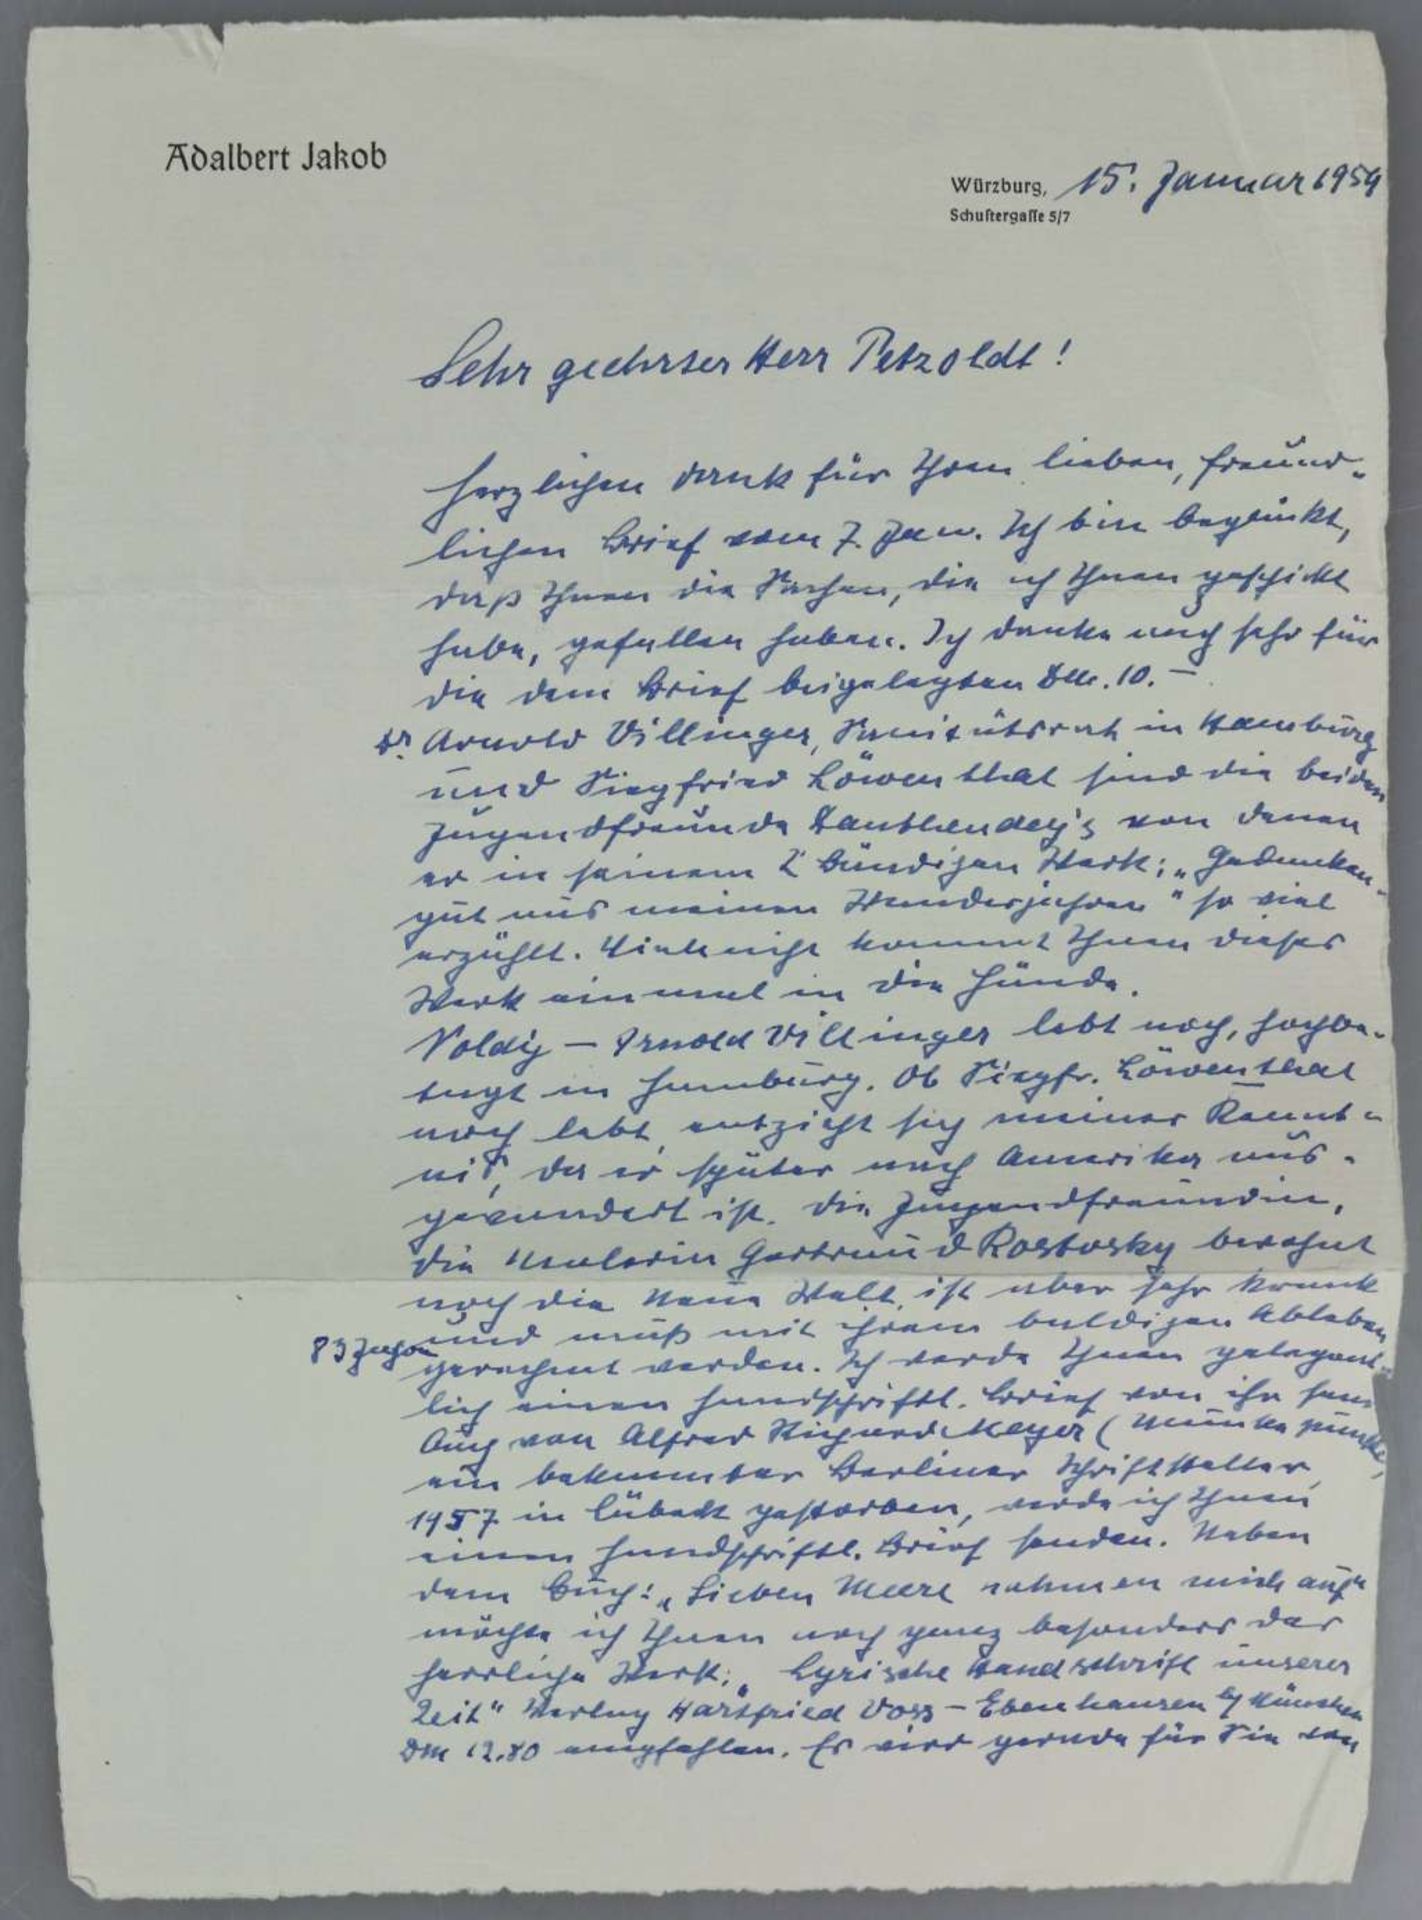 Adalbert Jakob
Würzburg, 15. Januar 1959
Schustergasse 5/7
Sehr geehrter Herr Petzoldt!
Herzlichen Dank für Ihren lieben, freund-
lichen Brief vom 7. Jan. Ich bin beglückt,
daß Ihnen die Sachen, die ich Ihnen geschickt
habe, gefallen haben. Ich danke auch sehr für
die dem Brief beigelegten DM. 10.–
Dr. Arnold Villinger, Sanitätsrat in Hamburg
und Siegfried Löwenthal sind die beiden
Jugendfreunde Dauthendey's von denen
er in seinem 2 bändigen Werk: „Gedanken-
gut aus meinen Wanderjahren" so viel
erzählt. Vielleicht kommt Ihnen dieses
Werk einmal in die Hände.
Noldy – Arnold Villinger lebt noch, hochbe-
tagt in Hamburg. Ob Siegfr. Löwenthal
noch lebt, entzieht sich meiner Kennt-
nis, da er später nach Amerika aus-
gewandert ist. Die Jugendfreundin,
die Malerin Gertraud Rostosky bewohnt
noch die Neue Welt, ist aber sehr krank
und muß mit ihrem baldigen Ableben
83 Jahre
gerechnet werden. Ich werde Ihnen gelegent-
lich einen handschriftl. Brief von ihr
Auch von Alfred Richard Meyer (Munkepunke,
ein bekannter Berliner Schriftsteller,
1957 in Lübeck gestorben, werde ich Ihnen
einen handschriftl. Brief senden. Neben
dem Buch: „Sieben Meere nahmen mich auf"
möchte ich Ihnen noch ganz besonders das
herrliche Werk: „Lyrische Handschrift unserer
Zeit" Verlag Hartfried Voss – Ebenhausen b/ München
DM 12.80 empfehlen. Es wird gerade für Sie von